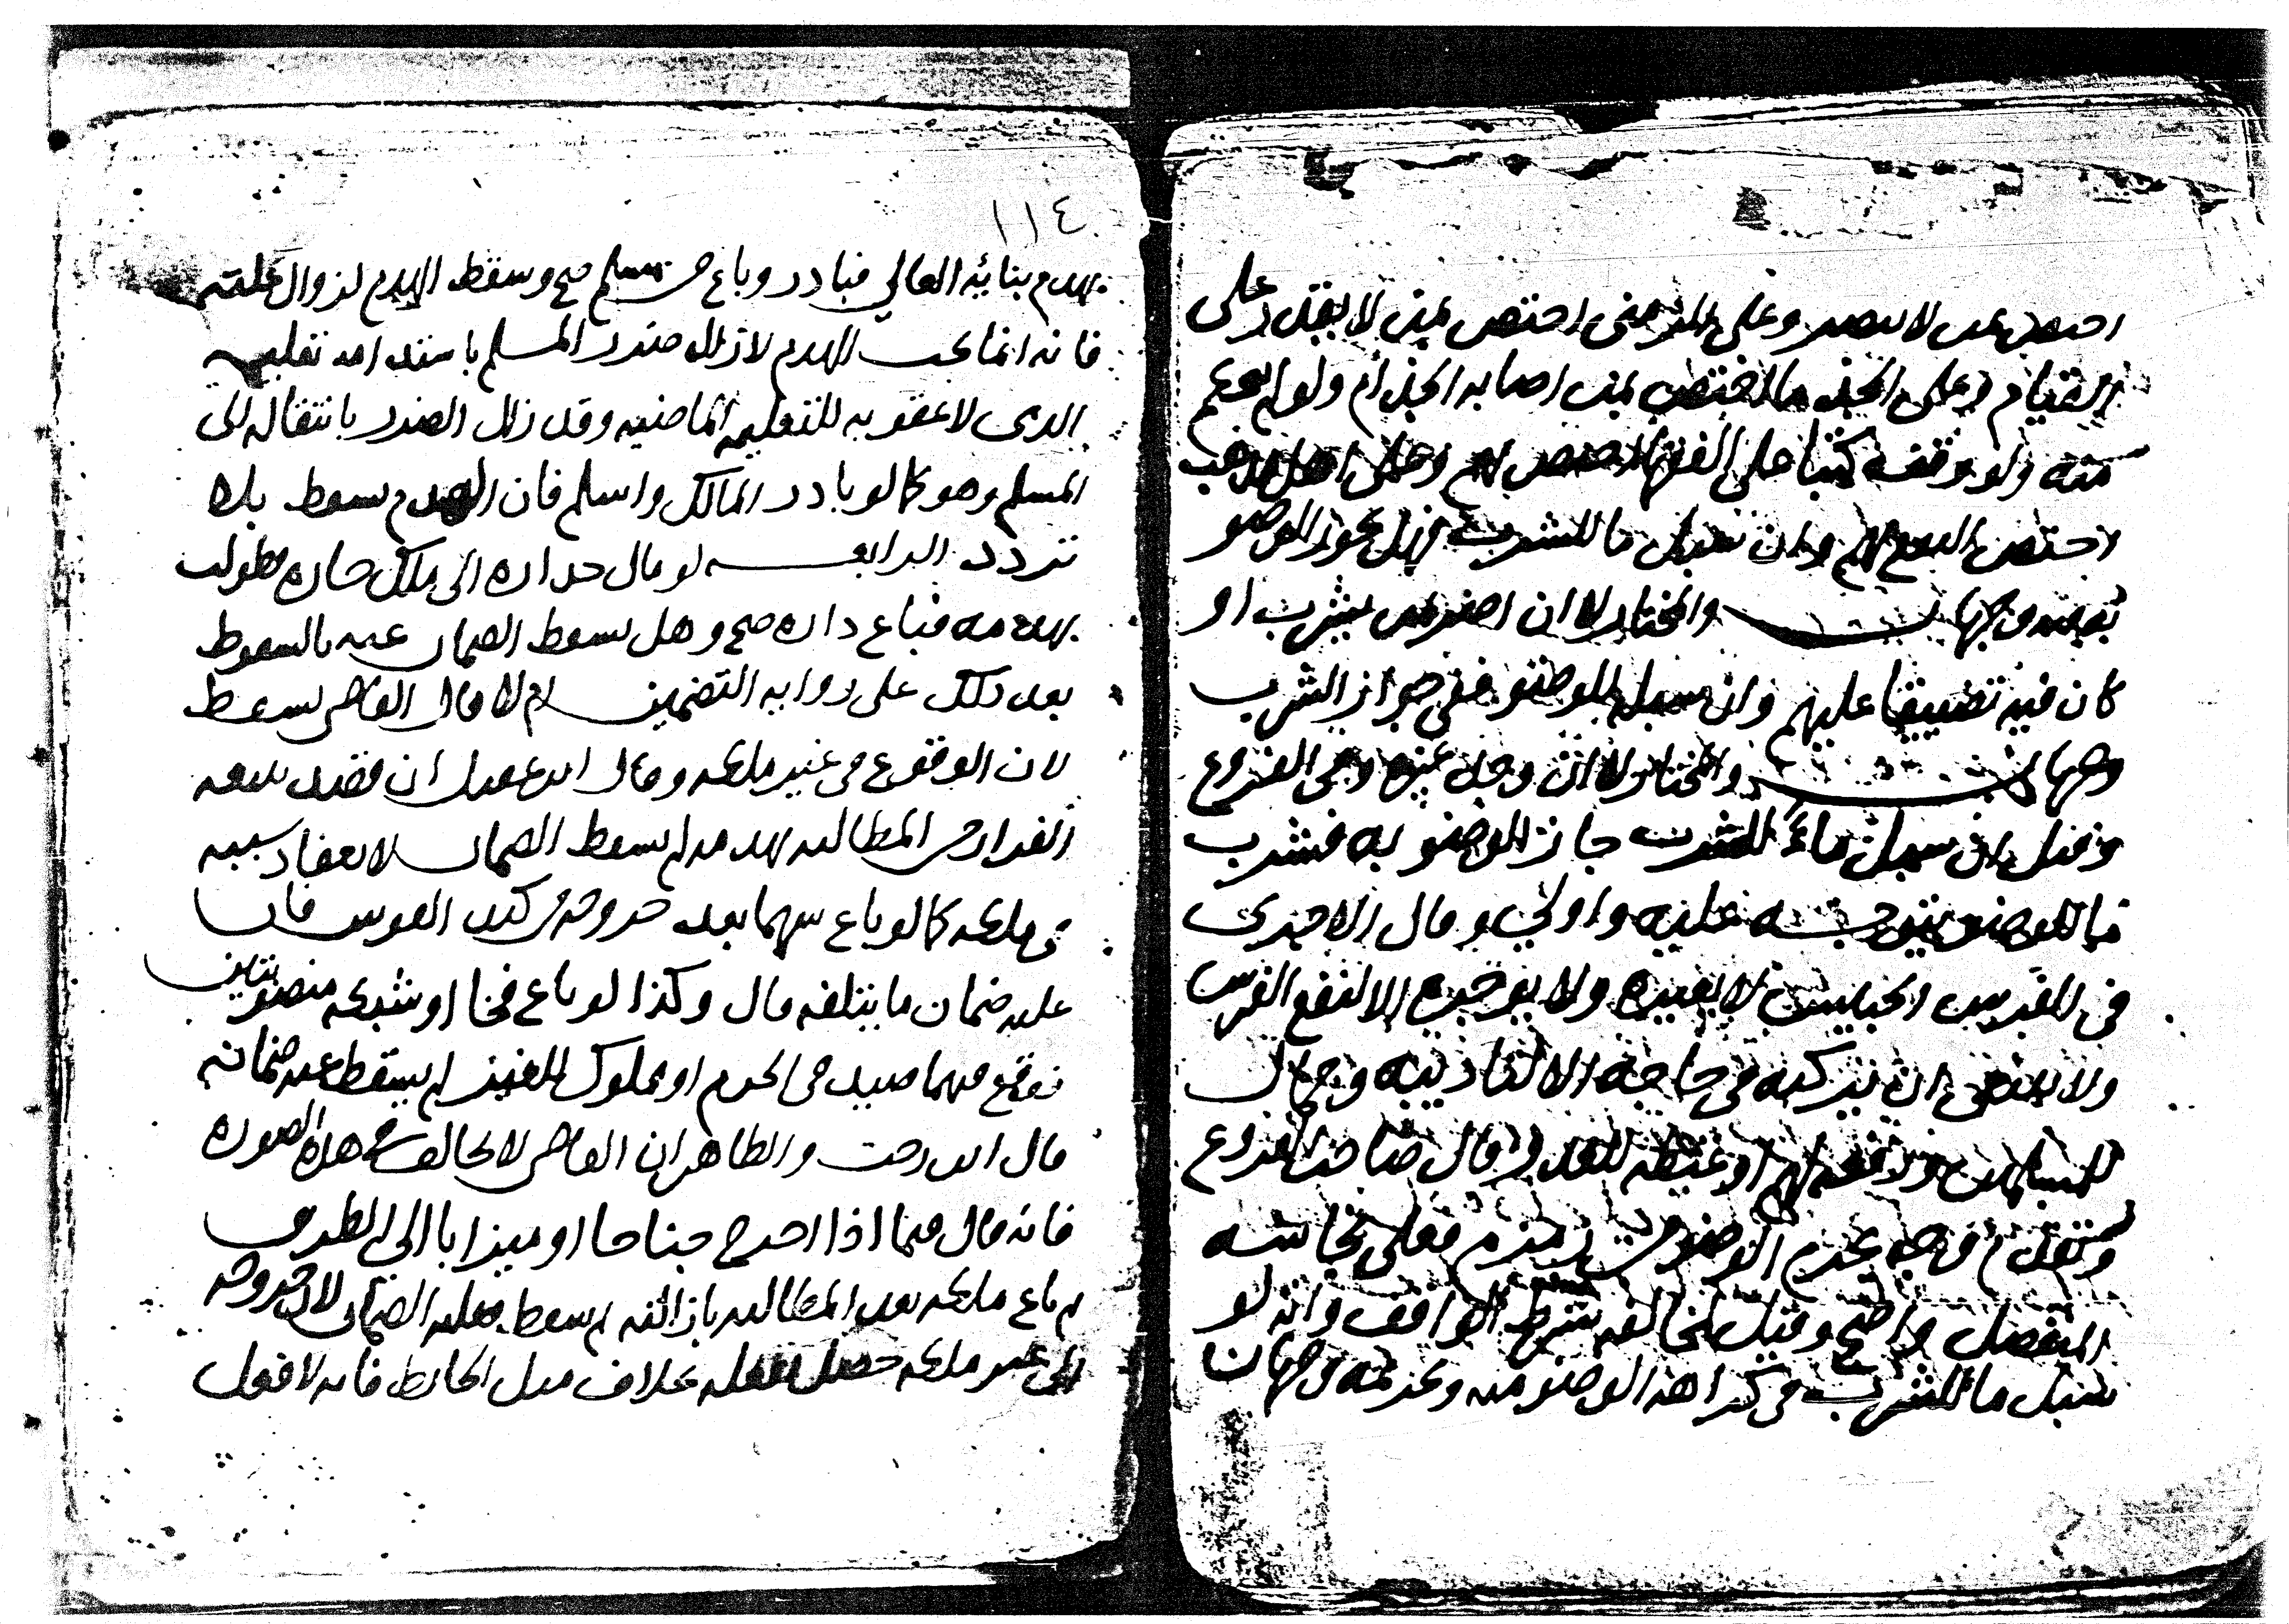 اختص بمن لا يبصر وعلى المزمنى اختص بمن لا يقدر على
القيام وعلى الجذما اختص بمن اصابه الجذام ولو لم يعم
منه ولو وقف كتبا على الفقها اختص بهم وعلى اهل مذهب
اختص الجميع بهم وان سبل ما للشرب فهل يجوز الوضو
وجهان والمختار لا ان اضر بمن يشرب او
كان فيه تضييقا عليهم وان سبل للوضو ففي جواز الشرب
وجهان والمختار لا ان وجد غيره وفي الفروع
وقيل ان سبل ماء للشرب جاز الوضو به فشرب
ما للوضو يتوجه عليه واولى وقال الاجري
في الفرس الحبيس لا يعيره ولا يوجره الا لنفع الفرس
ولا ينبغي ان يركبه في حاجة الا لتاديبه وجمال
للمسلمين ورفعة لهم او غيظة للعدو قال صاحب الفروع
وتقدم وجه يحرم الوضو من زمزم فعلى نجاسة
المنفصل واضح وقيل لمخالفة شرط الواقف وانه لو
سبل ما للشرب في كراهة الوضو منه وتحريمه وجهان
١١٤
بهدم بنائه العالي فبادر وباع من مسلم صح وسقط الهدم لزوال علته
فانه انما يجب الهدم لازالة ضرر المسلم باستدامة تعليه
الذى لا عقوبه للتعليه الماضيه وقد زال الضرر بانتقاله الى
المسلم وهو كما لو بادر المالك واسلم فان الهدم يسقط بلا
تردد الرابعه لو مال جداره الى ملك جاره فطولب
بهدمه فباع داره صح وهل يسقط الضمان عنه بالسقوط
بعد ذلك على روايه التضمين ام لا قال القاضى يسقط
لان الوقوع في غير ملكه وقال ابن عقيل ان قصد ببيعه
الفرار من المطالبه بهدمه لم يسقط الضمان لانعقاد سببه
في ملكه كما لو باع سهما بعد خروجه من كبد القوس فان
عليه ضمان ما يتلفه قال وكذا لو باع فخا او شبكه منصوبتين
فوقع فيهما صيد في الحرم او مملوك للغير لم يسقط عنه ضمانه
قال ابن رجب والظاهر ان القاضى لا يخالف في هذه الصوره
فانه قال فيما اذا اخرج جناحا او ميزابا الى الطريق
ثم باع ملكه بعد المطالبه بازالته لم يسقط عليه الضمان لان خروجه
الى غير ملكه حصل بفعله بخلاف ميل الحايط فانه لا فعل